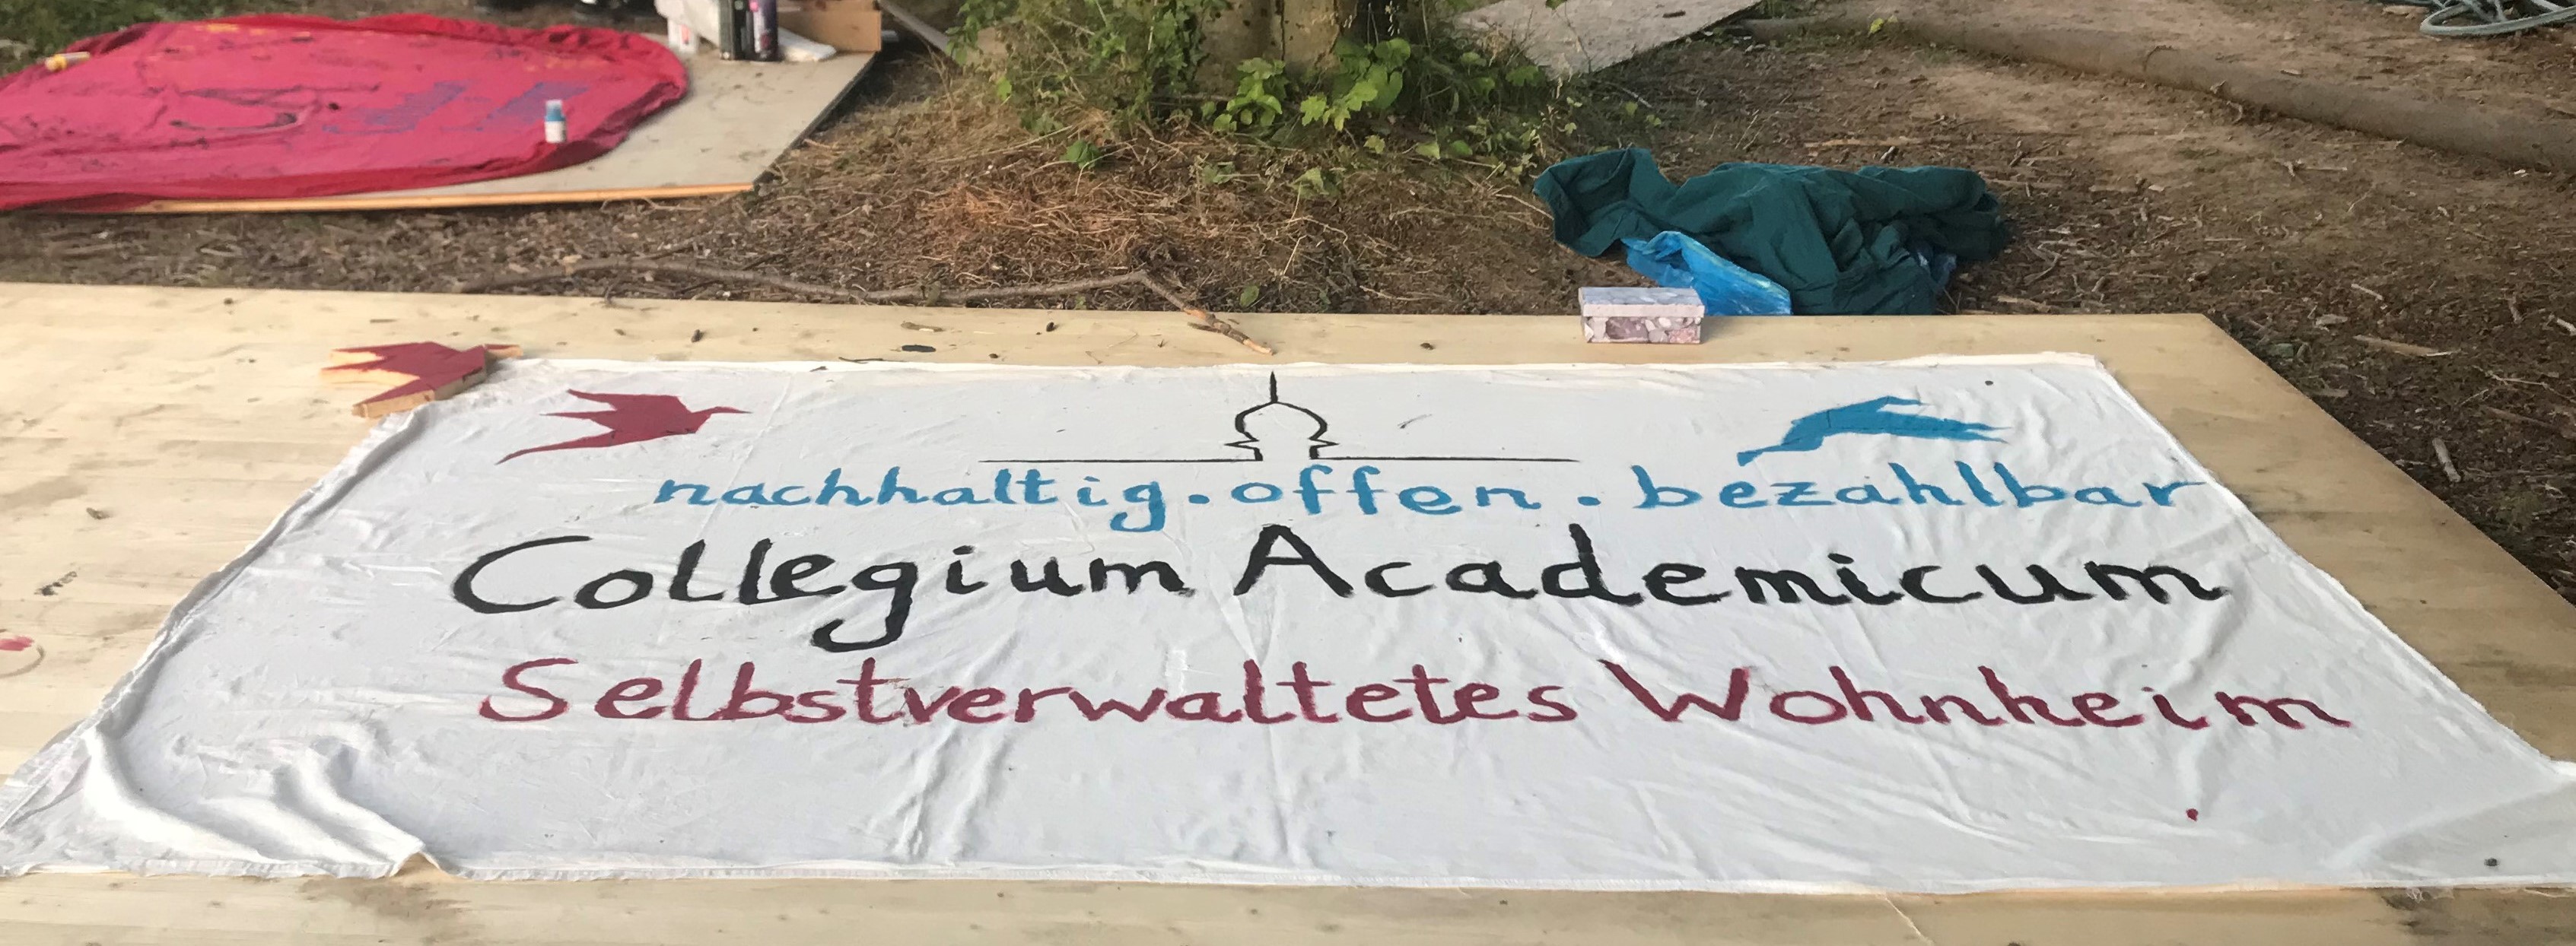 nachhaltig.offen.bezahlbar
Collegium Academicum
Selbstverwaltetes Wohnheim